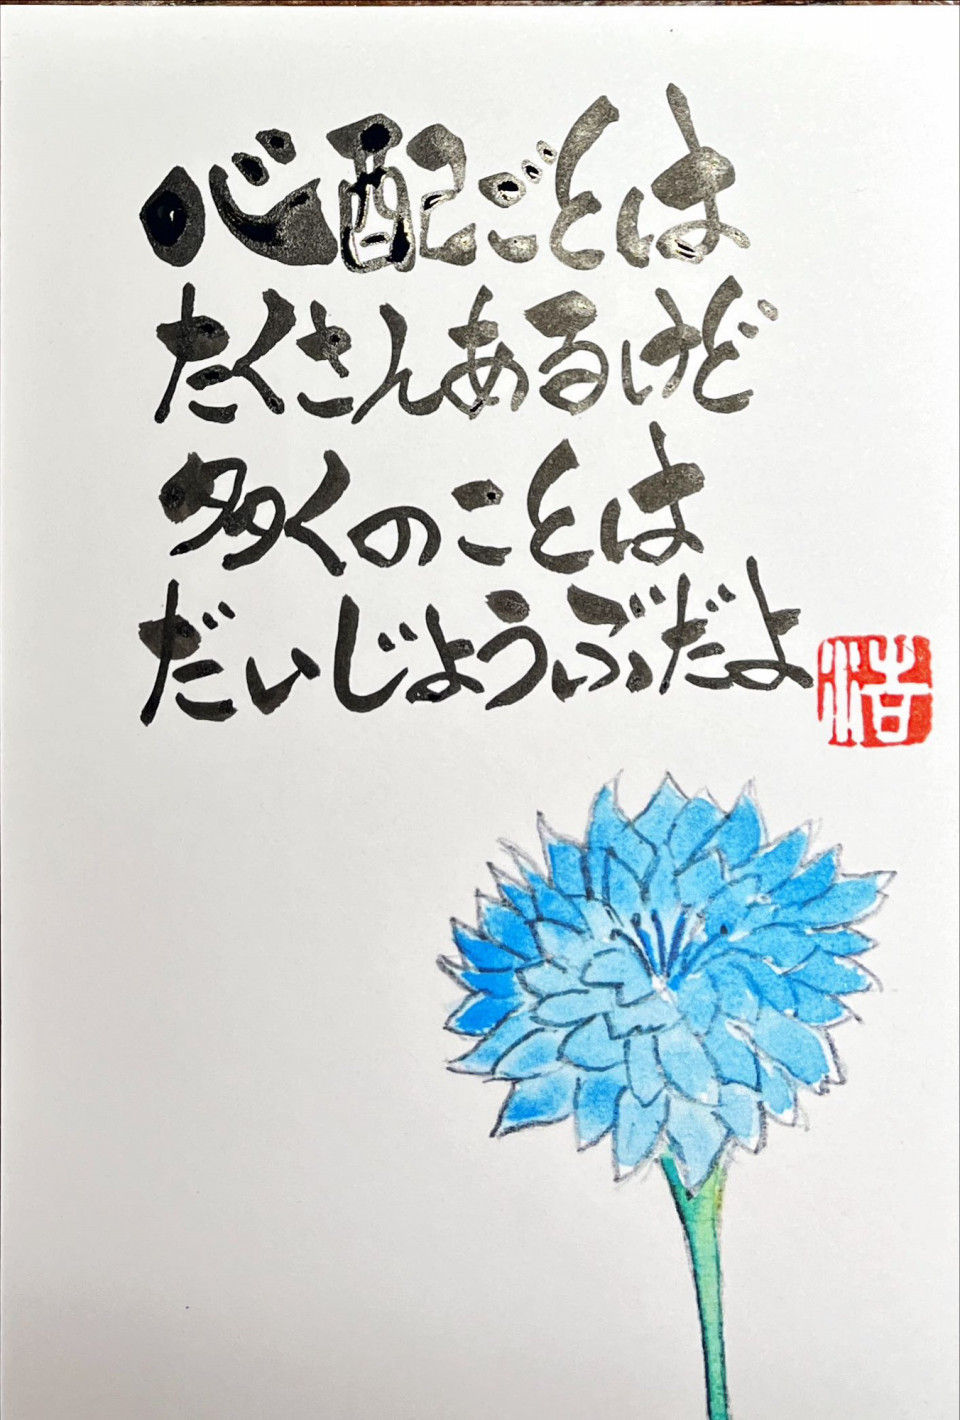 心配ごとは
たくさんあるけど
多くのことは
だいじょうぶだよ